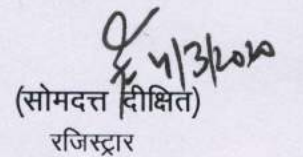 4/3/2020
(सोमदत्त दीक्षित)
रजिस्ट्रार